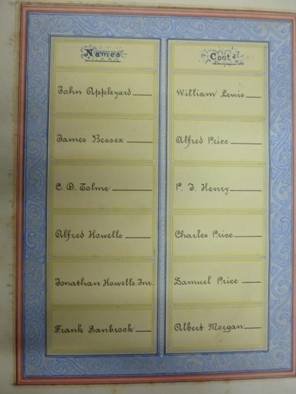 Names
John Appleyard
James Besser
C. D. Tolme
Alfred Howells
Jonathan Howells Jnr.
Frank Banbrook
Contd.
William Lewis
Alfred Price
P. J. Henry
Charles Price
Samuel Price
Albert Morgan